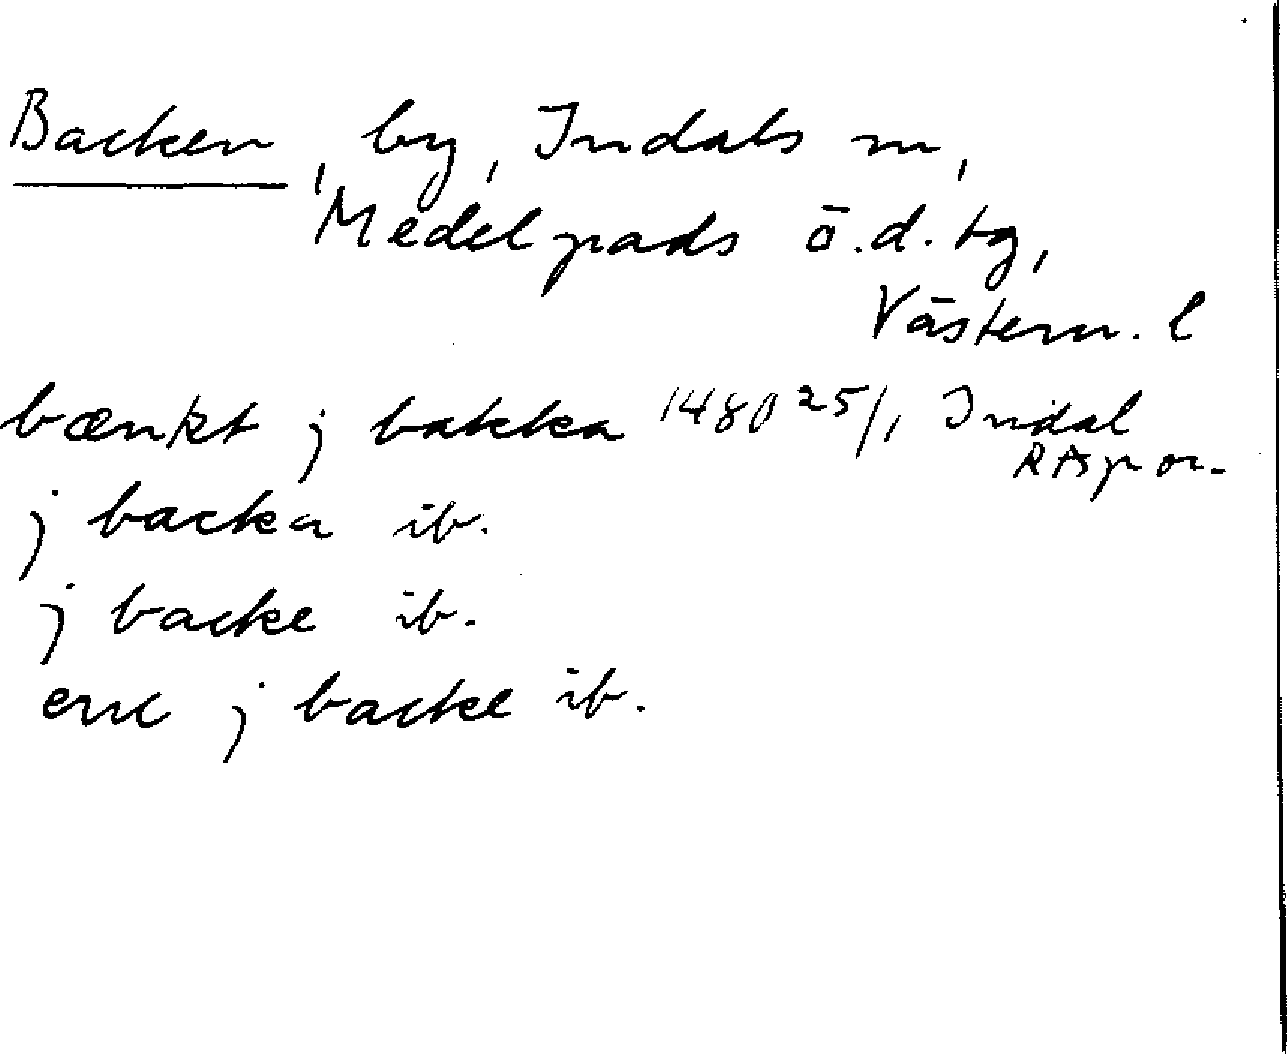 Backen, by, Indals sn,
Medelpads ö.d. tg,
Västern. l
bænkt j bakka 1480 25/1 Indal
RApor.
j backa ib.
j backe ib.
enl j backe ib.